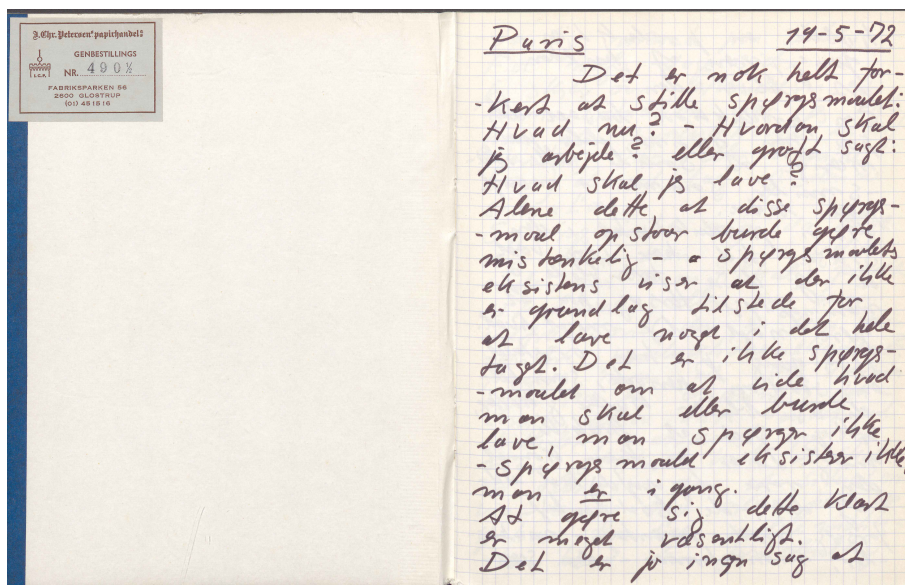 J. Chr. Petersens papirhandel A/S
GENBESTILLINGS
NR. 490½
I.C.P.
FABRIKSPARKEN 56
2600 GLOSTRUP
(01) 451516
Paris 19-5-72
Det er nok helt for-
-kert at stille spørgsmaalet:
Hvad nu? - Hvordan skal
jeg arbejde? eller groft sagt:
Hvad skal jeg lave?
Alene dette, at disse spørgs-
-maal opstaar burde gøre
mistænkelig - spørgsmaalets
eksistens viser at der ikke
er grundlag tilstede for
at lave noget i det hele
taget. Det er ikke spørgs-
-maalet om at vide hvad
man skal eller burde
lave, man spørger ikke,
- spørgsmaalet eksisterer ikke,
man er igang.
At gøre sig dette klart
er meget væsentligt.
Det er jo ingen sag at